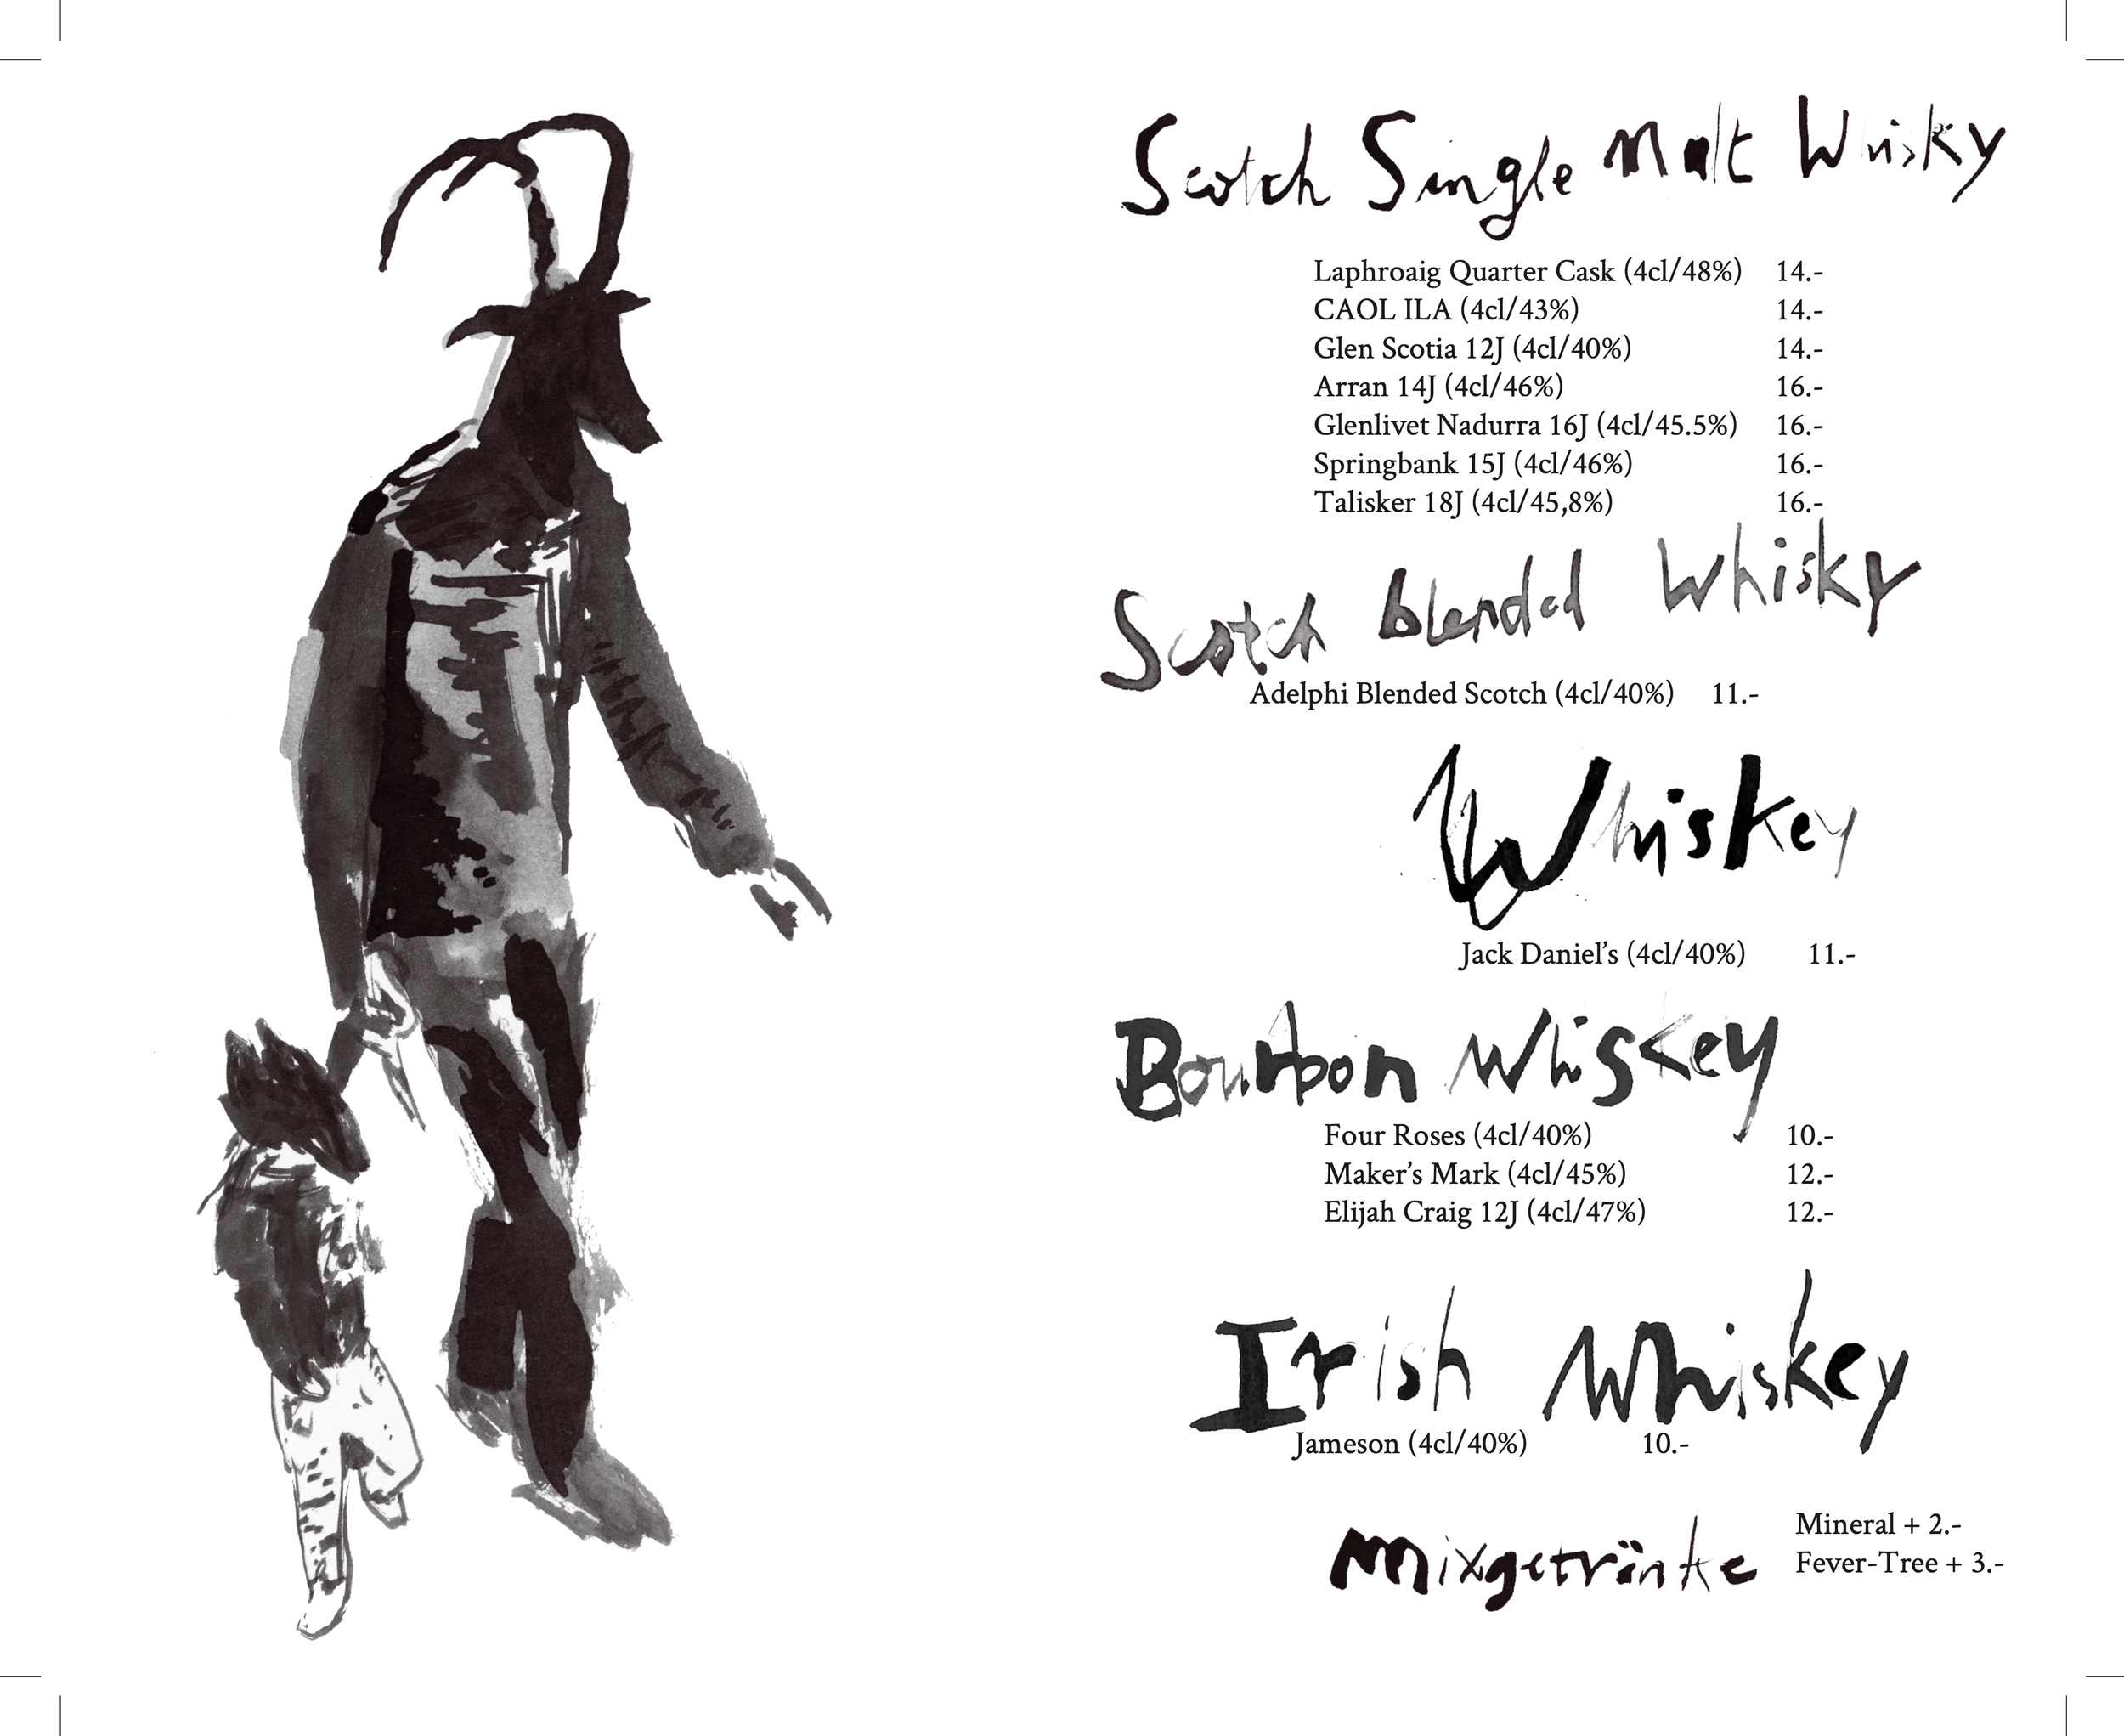 Scotch Single Malt Whisky
Laphroaig Quarter Cask (4cl/48%) 14.-
CAOL ILA (4cl/43%) 14.-
Glen Scotia 12J (4cl/40%) 14.-
Arran 14J (4cl/46%) 16.-
Glenlivet Nadurra 16J (4cl/45.5%) 16.-
Springbank 15J (4cl/46%) 16.-
Talisker 18J (4cl/45,8%) 16.-
Scotch blended Whisky
Adelphi Blended Scotch (4cl/40%) 11.-
Whiskey
Jack Daniel’s (4cl/40%) 11.-
Bourbon Whiskey
Four Roses (4cl/40%) 10.-
Maker’s Mark (4cl/45%) 12.-
Elijah Craig 12J (4cl/47%) 12.-
Irish Whiskey
Jameson (4cl/40%) 10.-
Mixgetränke
Mineral + 2.-
Fever-Tree + 3.-